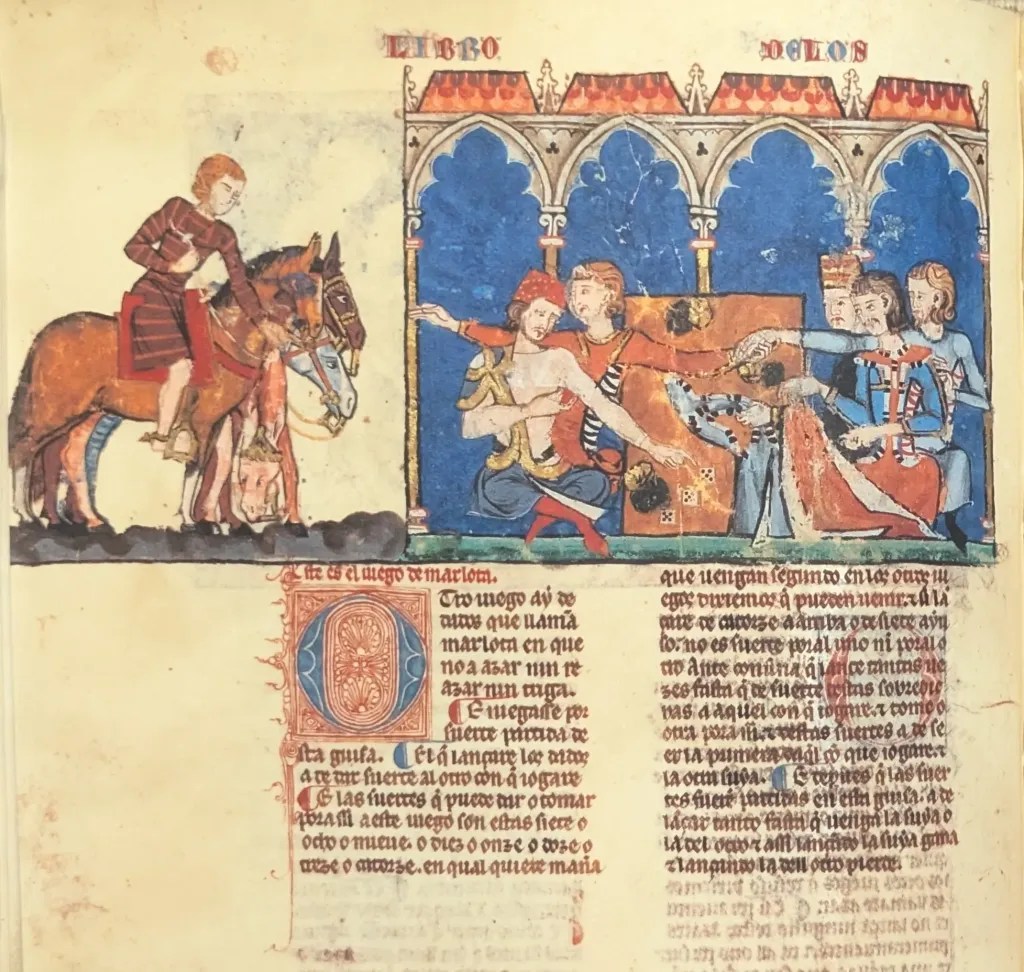 LIBRO DELOS
Este es el iuego de marlota.
Otro iuego aẏ de
dados que llamã
marlota en que
no a azar nin re
azar nin triga.
E iuegasse por
suerte partida de
sta guisa. El q̃ lançare los dados
a de dar suerte al otro con q̃ iogare
E las suertes q̃ puede dar o tomar
pora ssi a este iuego son estas siete o
ocho o nueue. o diez o onze o doze o
treze o catorze. en qual quiere mañã
que uengan segundo en los otros iu
egos dixiemos q̃ pueden uenir. ⁊ si la
de catorze a arriba o de siete aẏu
so. no es suerte poral uno ni poral o
tro Ante conuiña q̃ lance tantas ue
zes fasta q̃ de suerte destas sobredi
chas a aquel con q̃ iogare. ⁊ tome o
otra pora ssi. ⁊ destas suertes a de se
er la primera daq̃l cõ que iogare. ⁊
la otra suẏa. E depues q̃ las suer
tes fueren partidas en esta guisa. a de
lãçar tanto fasta q̃ uenga la suẏa o
la del otro ⁊ assi lançãdo la suẏa gana
⁊ lançando la dell otro pierde.